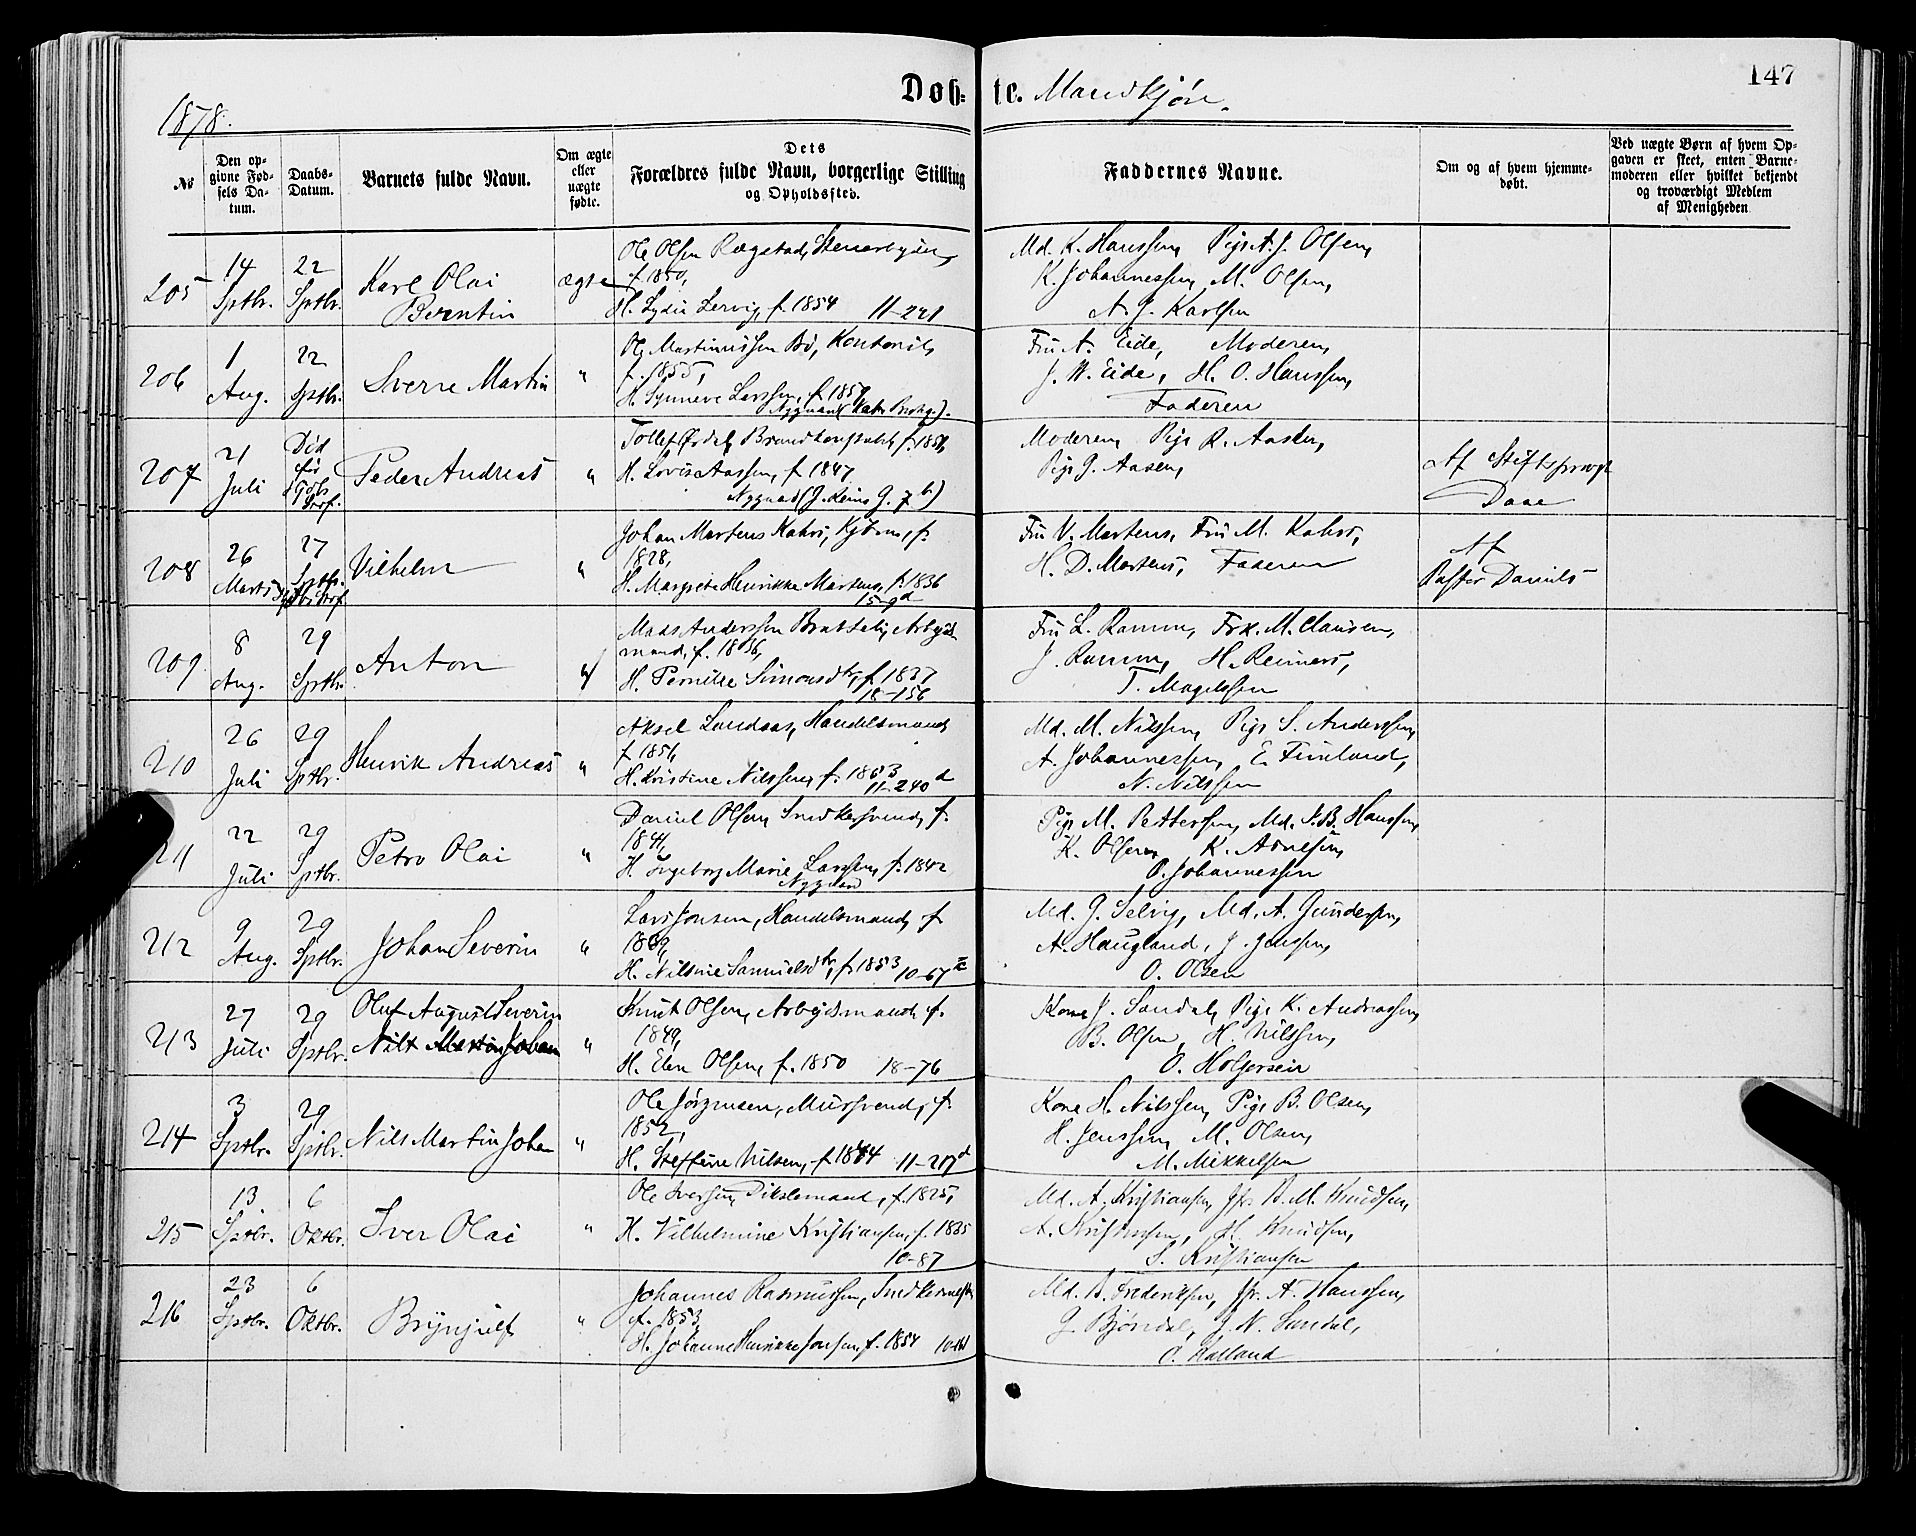 147
Døb= te. Mandkjøn.
1878.
№
Den op-
givne Fød-
sels Da-
tum.
Daabs-
Datum.
Barnets fulde Navn.
Om ægte
eller
uægte
fødte.
Dets
Forældres fulde Navn, borgerlige Stilling
og Opholdssted.
Faddernes Navne.
Om og af hvem hjemme-
døbt.
Ved uægte Børn af hvem Op-
gaven er skeet, enten Barne-
moderen eller hvilket bekjendt
og troværdigt Medlem
af Menigheden
205
14
Sptbr.
22
Sptbr.
Karl Olai
Berntin
ægte
Ole Olsen Rægstad,
f. 1850,
H. Lydia Lervig, f. 1854 11-221
Md. K. Hanssen, Pige A. J. Olsen,
K. Johannessen, M. Olsen,
A. J. Karlsen
206
1
Aug.
22
Sptbr.
Sverre Martin
"
Ole Martinussen Bø, Kontorist,
f. 1855,
H. Synneve Larssen, f. 1859
Nygaard
Fru A. Eide, Moderen,
J. W. Eide, H. O. Hanssen,
Faderen
207
21
Juli
Død
før
Peder Andreas
"
Tollef Ørdal, Brandkonstabel,
H. Lovise Aassen, f. 1847
Nygaard
Moderen, Pige R. Aasen,
Pige G. Aasen,
Af Stiftsprovst
Daae
208
26
Marts
27
Sptbr.
Vilhelm
"
Johan Martens Kahrs, Kjøbm, f.
1828,
H. Margrete Henrikke Martens, f. 1836
15-9d
Fru V. Martens, Fru M. Kahrs,
H. D. Martens, Faderen
Af
Pastor Daniels
209
8
Aug.
29
Sptbr.
Anton
"
Mads Anderssen Brattelie, Arbejds
mand, f. 1836,
H. Pernille Simonsdtr, f. 1837
18-156
Fru L. Ramm, Frk. M. Clausen,
J. Ramm, H. Reimers,
T. Magelssen
210
26
Juli
29
Sptbr.
Henrik Andreas
"
Aksel Landaas, Handelsmand
f. 1851,
H. Kristine Nilssen, f. 1853
11-240d
Md. M. Nilssen, Pige S. Anderssen,
A. Johannessen, E. Fineland,
N. Nilssen
211
22
Juli
29
Sptbr.
Petro Olai
"
Daniel Olsen, Snedkersvend, f.
1841,
H. Ingeborg Marie Larssen, f. 1842
Nygaard
Pige M. Pettersen, Md. J. B. Hanssen,
K. Olsen, K. Arnesen,
O. Johannessen
212
9
Aug.
29
Sptbr.
Johan Severin
"
Lars Jonsen, Handelsmand, f.
1849,
H. Nilsine Samuelsdtr, f. 1853 10-67
Md. G. Selvig, Md. A. Gundersen,
A. Haugland, J. Jenssen,
O. Olsen
213
27
Juli
29
Sptbr.
Oluf August Severin
Nils Martin Johan
"
Knut Olsen, Arbejdsmand, f.
1849,
H. Elen Olsen, f. 1850 18-76
Kone J. Sandal, Pige K. Andreassen,
B. Olsen, H. Nilssen,
O. Holgersen
214
3
Sptbr.
29
Sptbr.
Nils Martin Johan
"
Ole Jørgensen, Mursvend, f.
1852,
H. Steffine Nilsen, f. 1844 11-217d
Kone H. Nilssen, Pige B. Olsen,
H. Jenssen, M. Olsen,
M. Mikkelsen
215
13
Sptbr.
6
Oktbr.
Iver Olai
"
Ole Iversen, f. 1825,
H. Vilhelmine Kristiansen, f. 1835
10-87
Md. A. Kristiansen, Jfr. B. M. Knudsen,
A. Kristensen, H. Knudsen,
S. Kristiansen
216
23
Sptbr.
6
Oktbr.
Brynjulf
"
Johannes Rasmussen, Snedkermester
f. 1853,
H. Johanne Henrikke Jonsen, f. 1854
Md. B. Frederiksen, Jfr. A. Hanssen,
G. Bjørndal, J. N. Sandal,
O. Halland